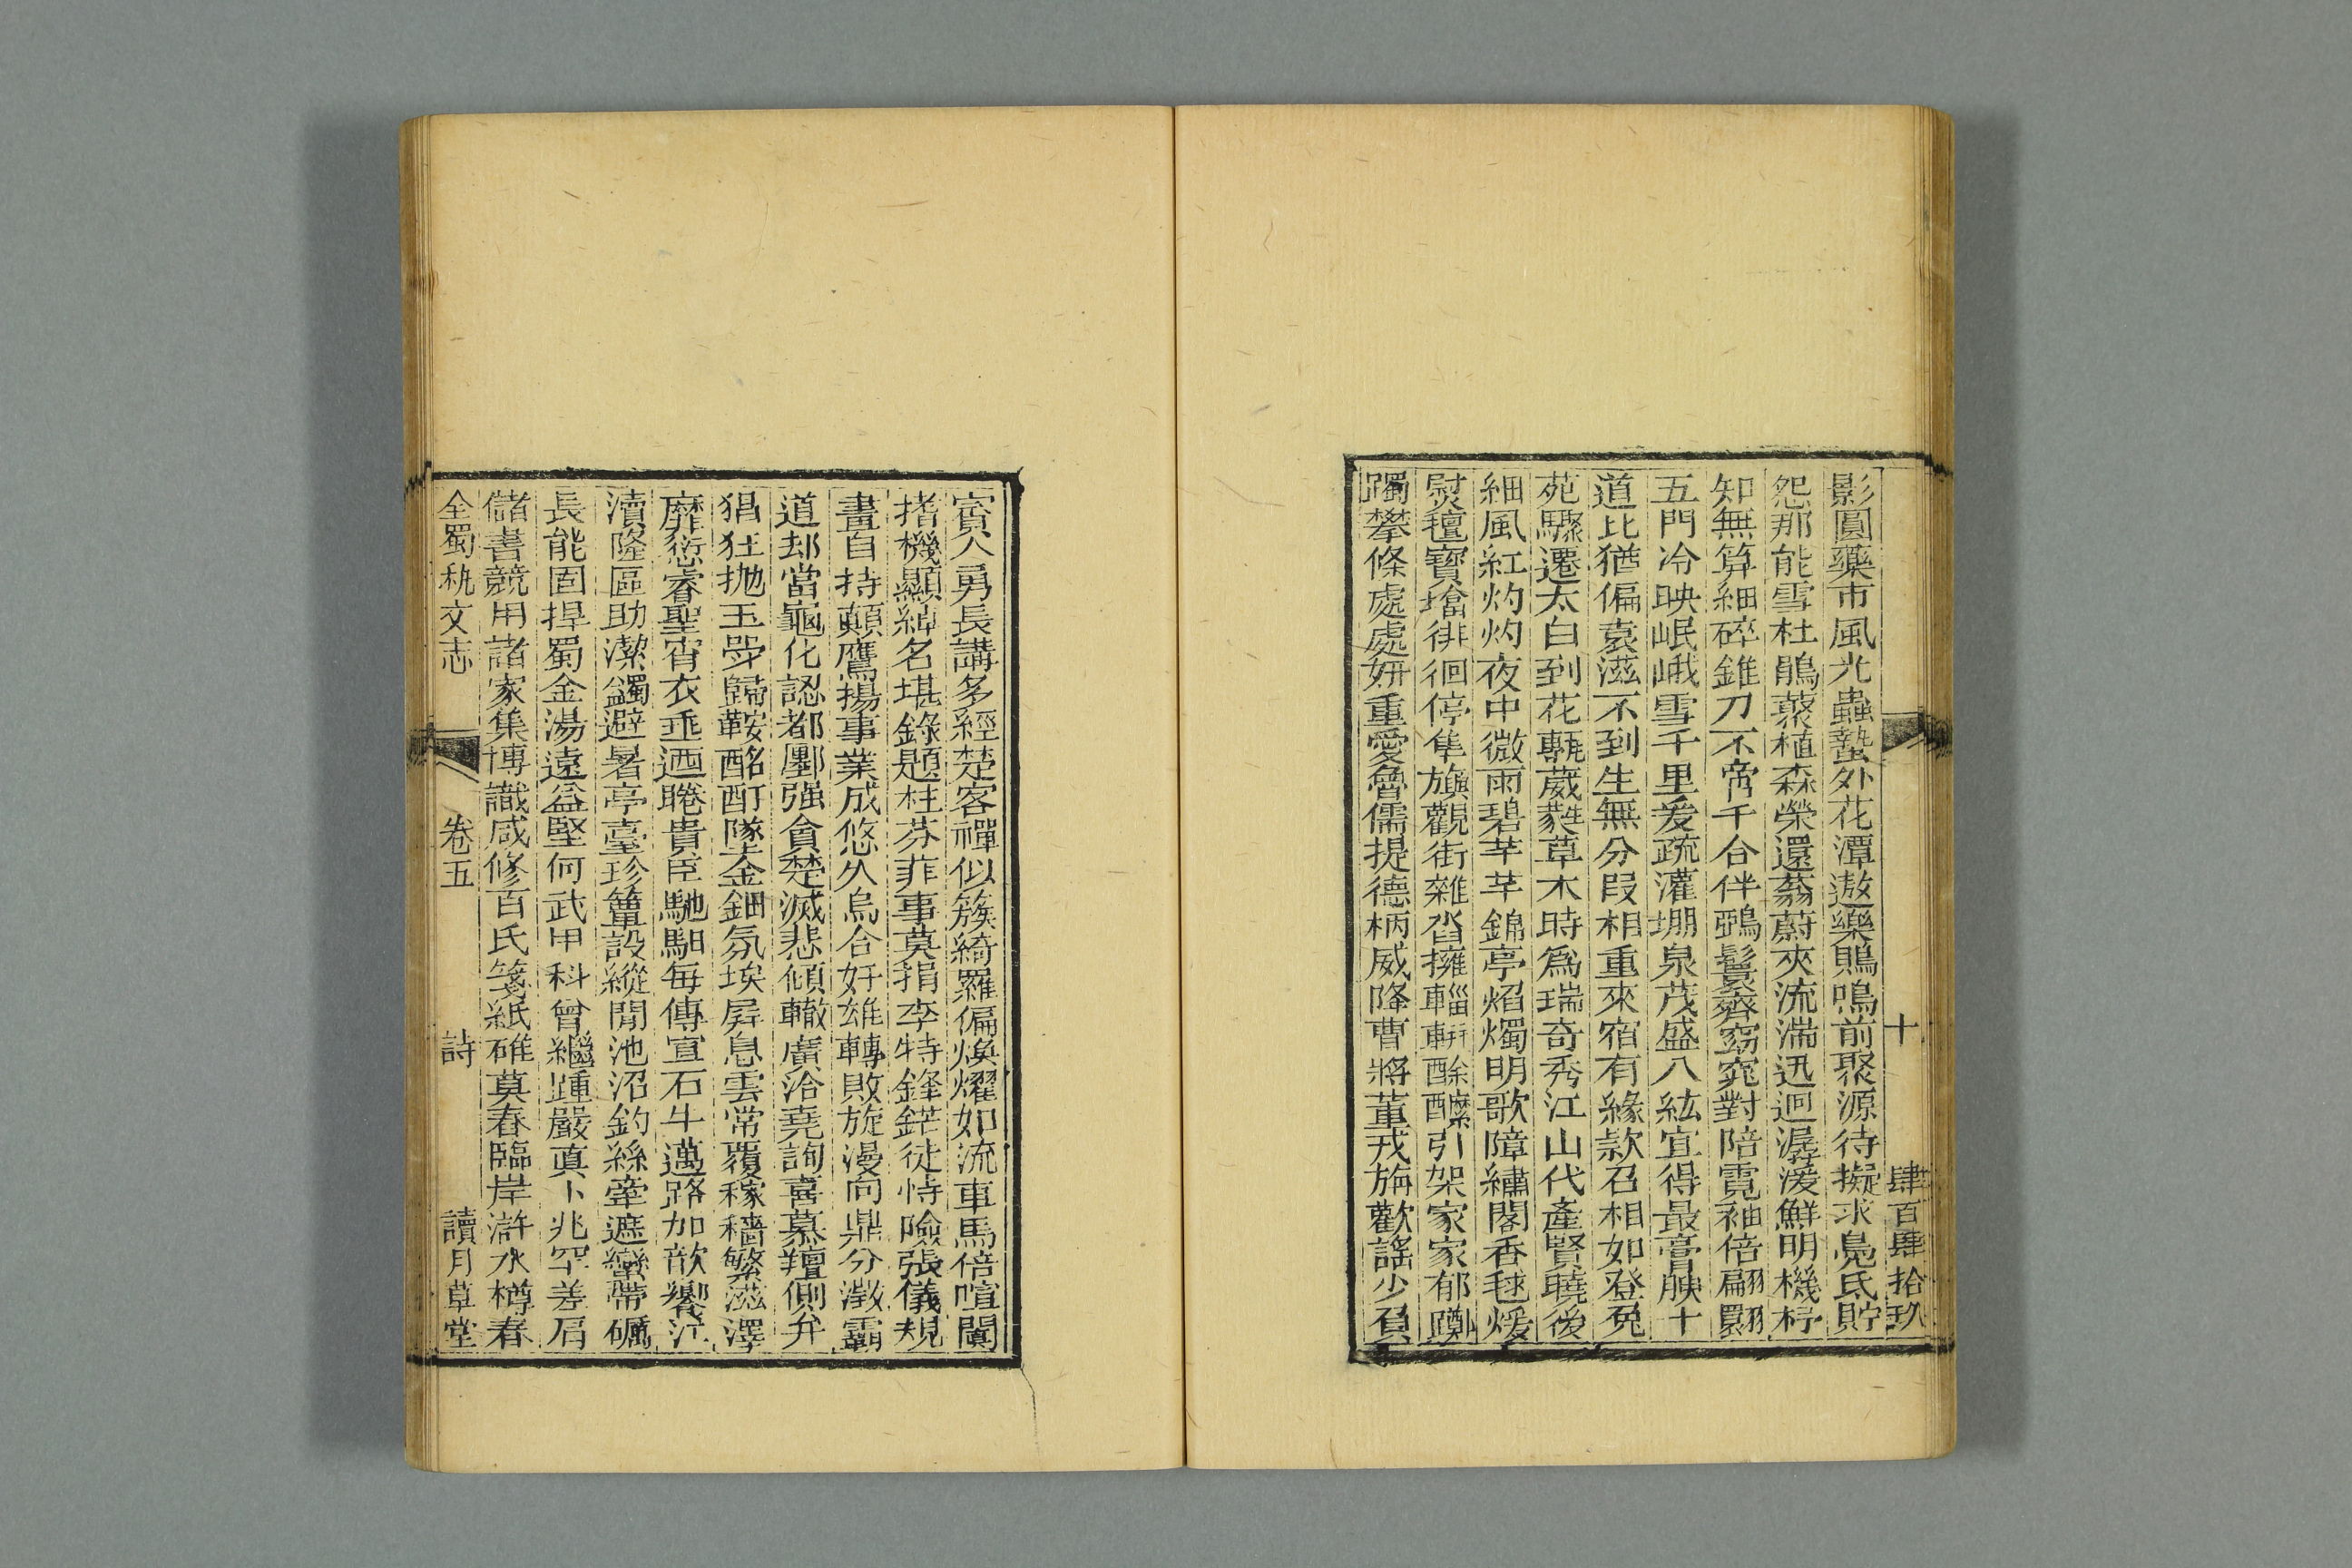 肆百肆拾玖
十
影圓藥市風光蟲蟄外花潭遨樂鵙鳴前聚源待擬求鳧氏貯
怨那能雪杜鵑蘂植森榮還蓊蔚夾流湍迅迴潺湲鮮明機杼
知無算細碎錐刀不啻千合伴鵶鬟齊窈窕對陪霓袖倍翩翾
五門冷映岷峨雪千里爰疏灌堋泉茂盛八紘宜得最膏腴十
道比猶偏袁滋不到生無分叚相重來宿有緣款召相如登兎
苑驟遷太白到花甎葳蕤草木時為瑞奇秀江山代產賢曉後
細風紅灼灼夜中微雨碧芊芊錦亭焰燭明歌障繡閣香毬煖
熨氊寶㙮徘徊停隼旟觀街雜沓擁輜軿酴醾引架家家郁躑
躅攀條處處妍重愛魯儒提德柄威降曹將董戎旃歡謠少負
賓人勇長講多經楚客禪似簇綺羅偏煥燿如流車馬倍喧闐
撦機顯綽名堪錄題柱芬菲事莫捐李特鋒鋩徒恃險張儀規
畫自持顛鷹揚事業成悠久烏合奸雄轉敗旋漫向鼎分澂霸
道却當龜化認都㕓强貪楚滅悲傾轍廣洽堯詢喜慕羶側弁
猖狂抛玉斝歸鞍酩酊墜金鈿氛埃屏息雲常覆稼穡繁滋澤
靡愆睿聖宵衣垂迺睠貴臣馳馹每傳宣石牛邁路加歆饗江
瀆隆區助潔蠲避暑亭臺珍簟設縱閒池沼釣絲牽遮蠻帶礪
長能固捍蜀金湯遠益堅何武甲科曾繼踵嚴真卜兆罕差肩
儲書競用諸家集博識咸修百氏箋紙碓莫春臨岸滸水樽春
全蜀秇文志
卷五
詩
讀月草堂